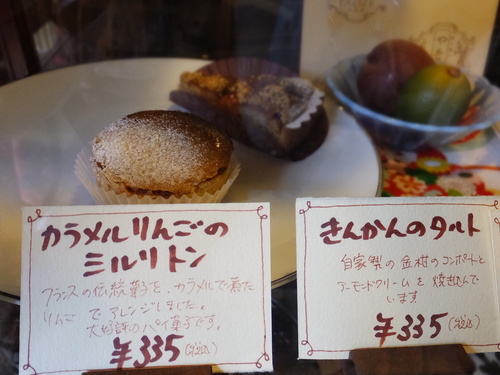 カラメルりんごの
ミルリトン
フランスの伝統菓子を、カラメルで煮た
りんご でアレンジしました。
大好評のパイ菓子です。
¥335(税込)
きんかんのタルト
自家製の金柑のコンポートと
アーモンドクリームを焼き込んで
います
¥335(税込)